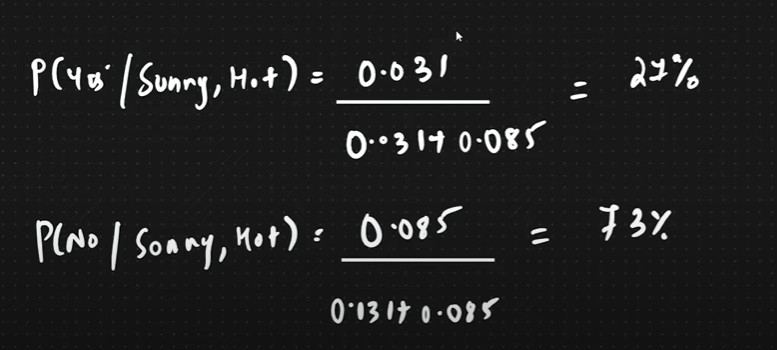 P(Yes/Sunny, Hot) = 0.031 / 0.031+0.085 = 27%
P(No/Sonny, Hot) = 0.085 / 0.131+0.085 = 73%